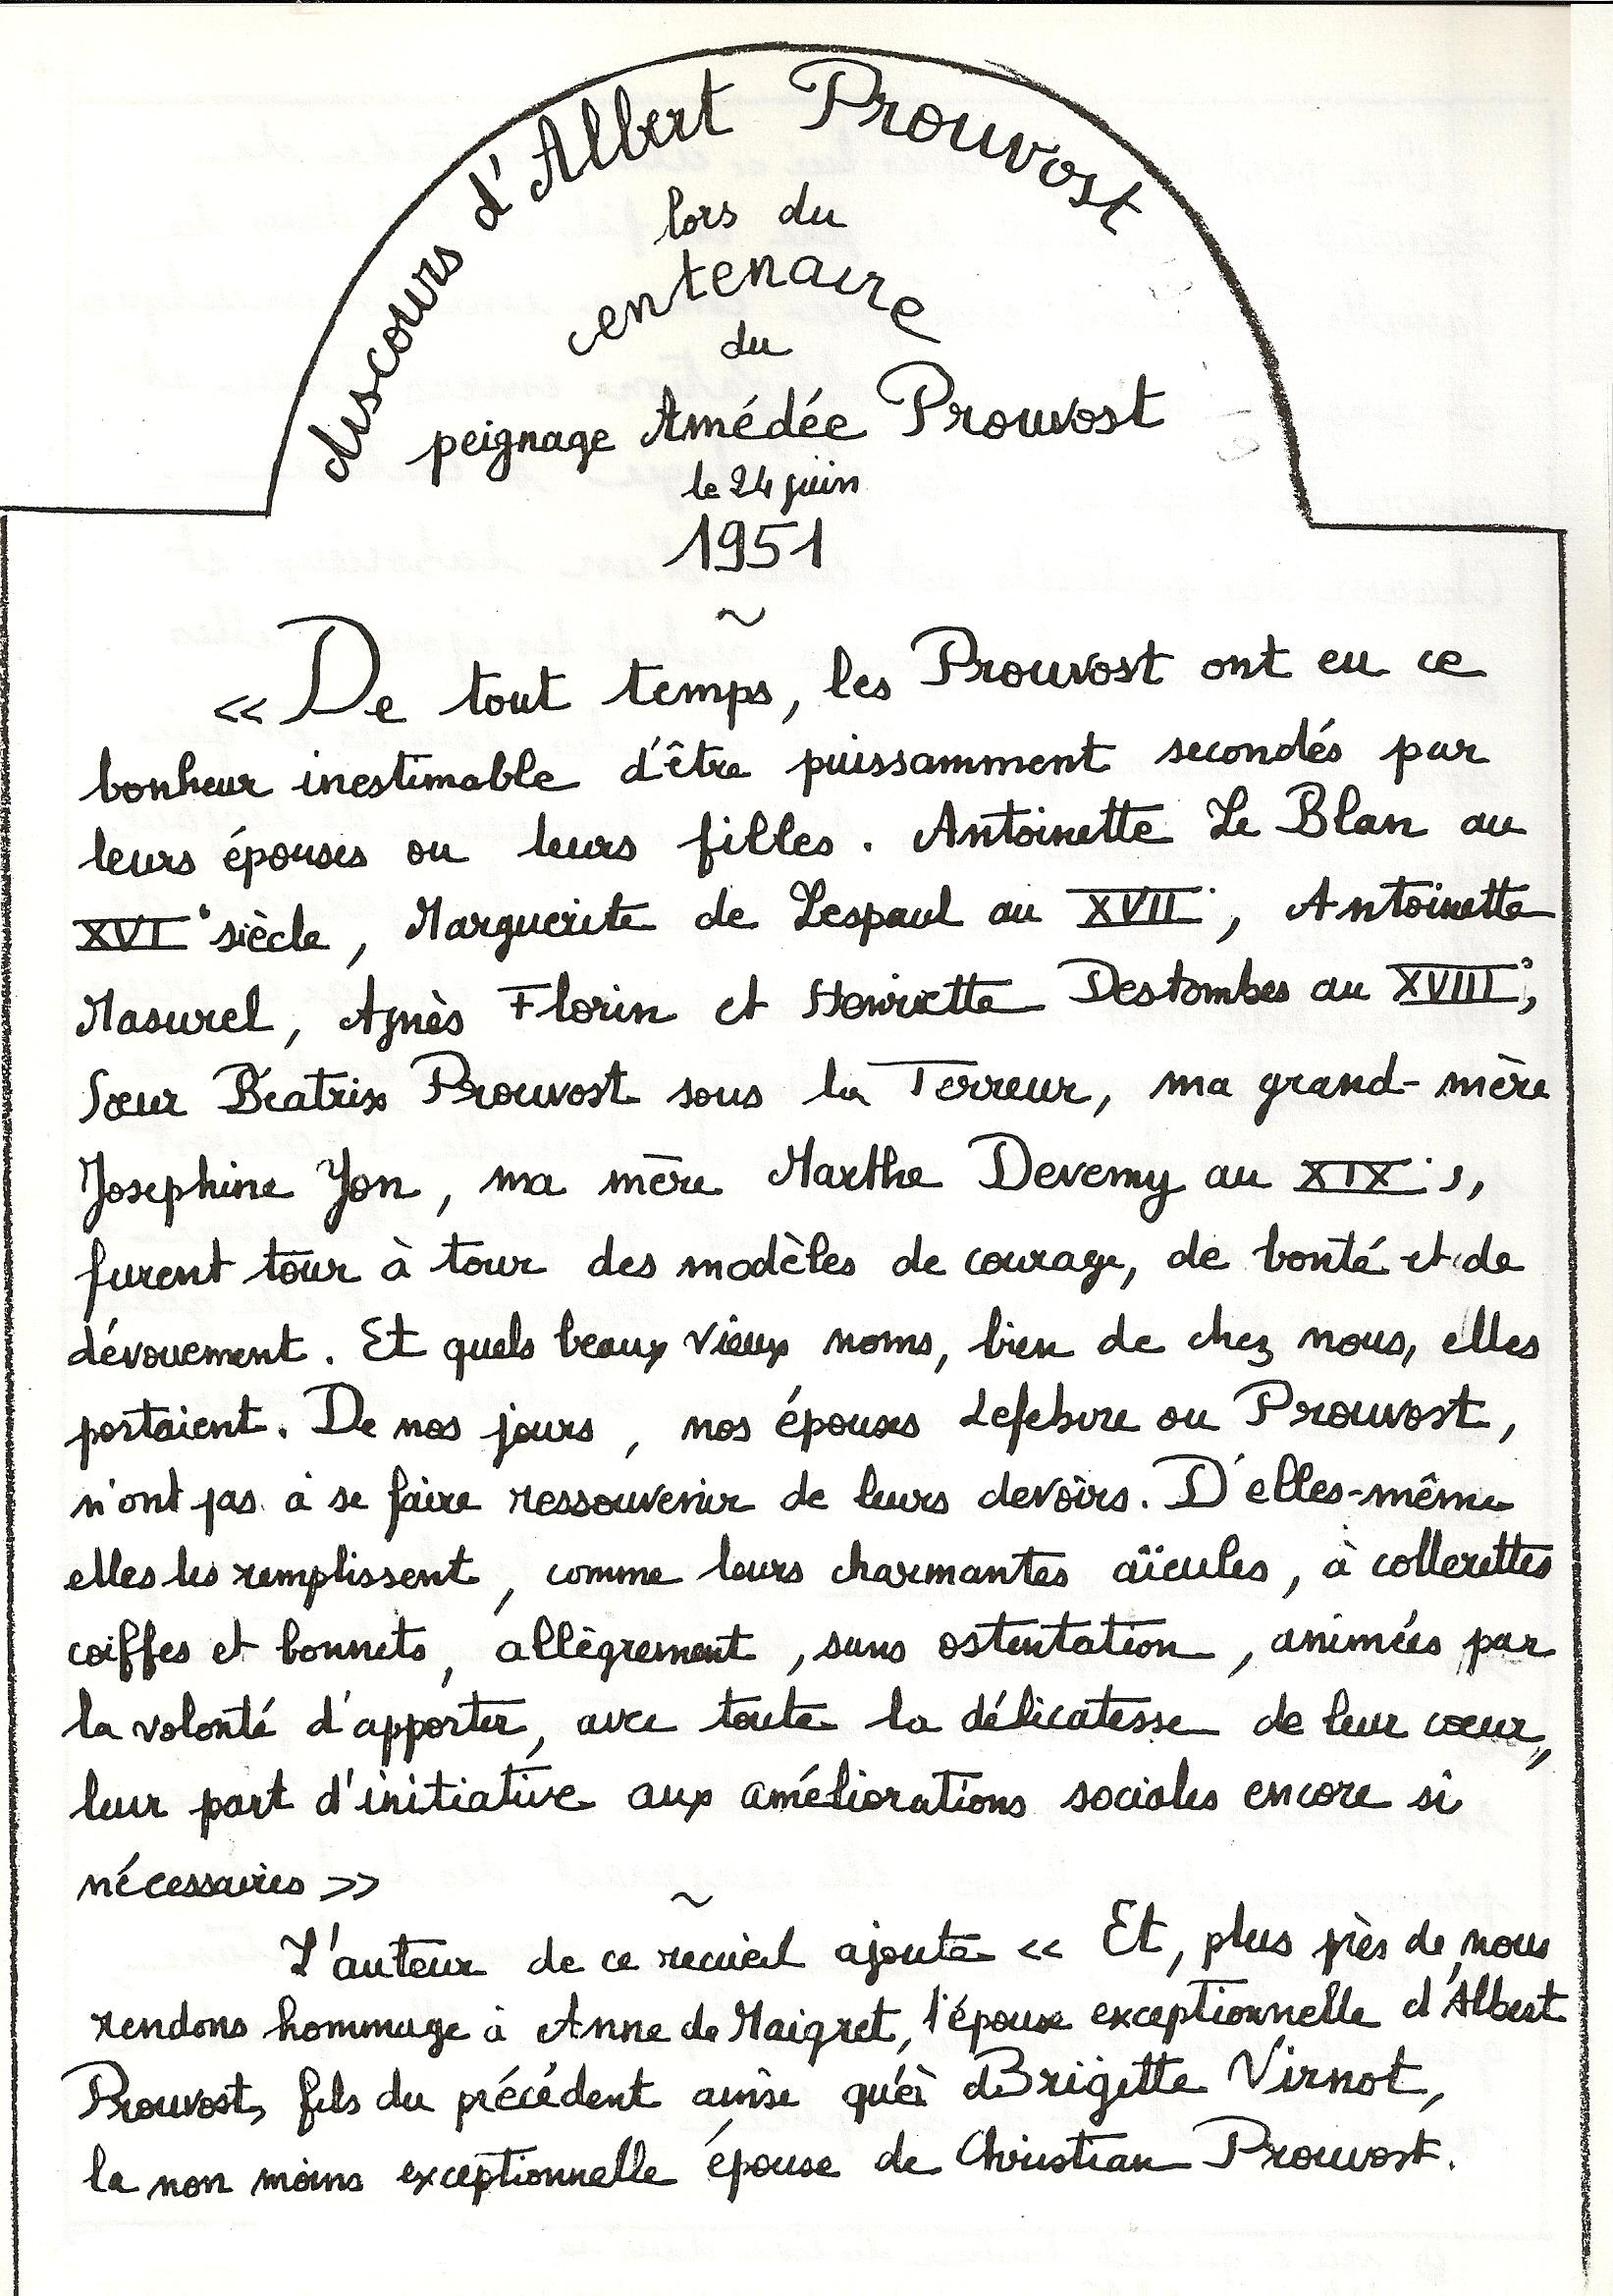 discours d'Albert Prouvost
lors du
centenaire
du
peignage Amédée Prouvost
le 24 juin
1951
~
« De tout temps, les Prouvost ont eu ce
bonheur inestimable d'être puissamment secondés par
leurs épouses ou leurs filles. Antoinette Le Blan au
XVI° siècle, Marguerite de Lespaul au XVII°, Antoinette
Masurel, Agnès Florin et Henriette Destombes au XVIII°,
Sœur Béatrix Prouvost sous la Terreur, ma grand-mère
Josephine Yon, ma mère Marthe Devemy au XIX° s,
furent tour à tour des modèles de courage, de bonté et de
dévouement. Et quels beaux vieux noms, bien de chez nous, elles
portaient. De nos jours, nos épouses Lefebvre ou Prouvost,
n'ont pas à se faire ressouvenir de leurs devoirs. D'elles-même
elles les remplissent, comme leurs charmantes aïeules, à collerettes
coiffes et bonnets, allègrement, sans ostentation, animées par
la volonté d'apporter, avec toute la délicatesse de leur cœur,
leur part d'initiative aux améliorations sociales encore si
nécessaires »
~
L'auteur de ce recueil ajoute « Et, plus près de nous
rendons hommage à Anne de Maigret, l'épouse exceptionnelle d'Albert
Prouvost, fils du précédent ainsi qu'à Brigitte Virnot,
la non moins exceptionnelle épouse de Christian Prouvost.